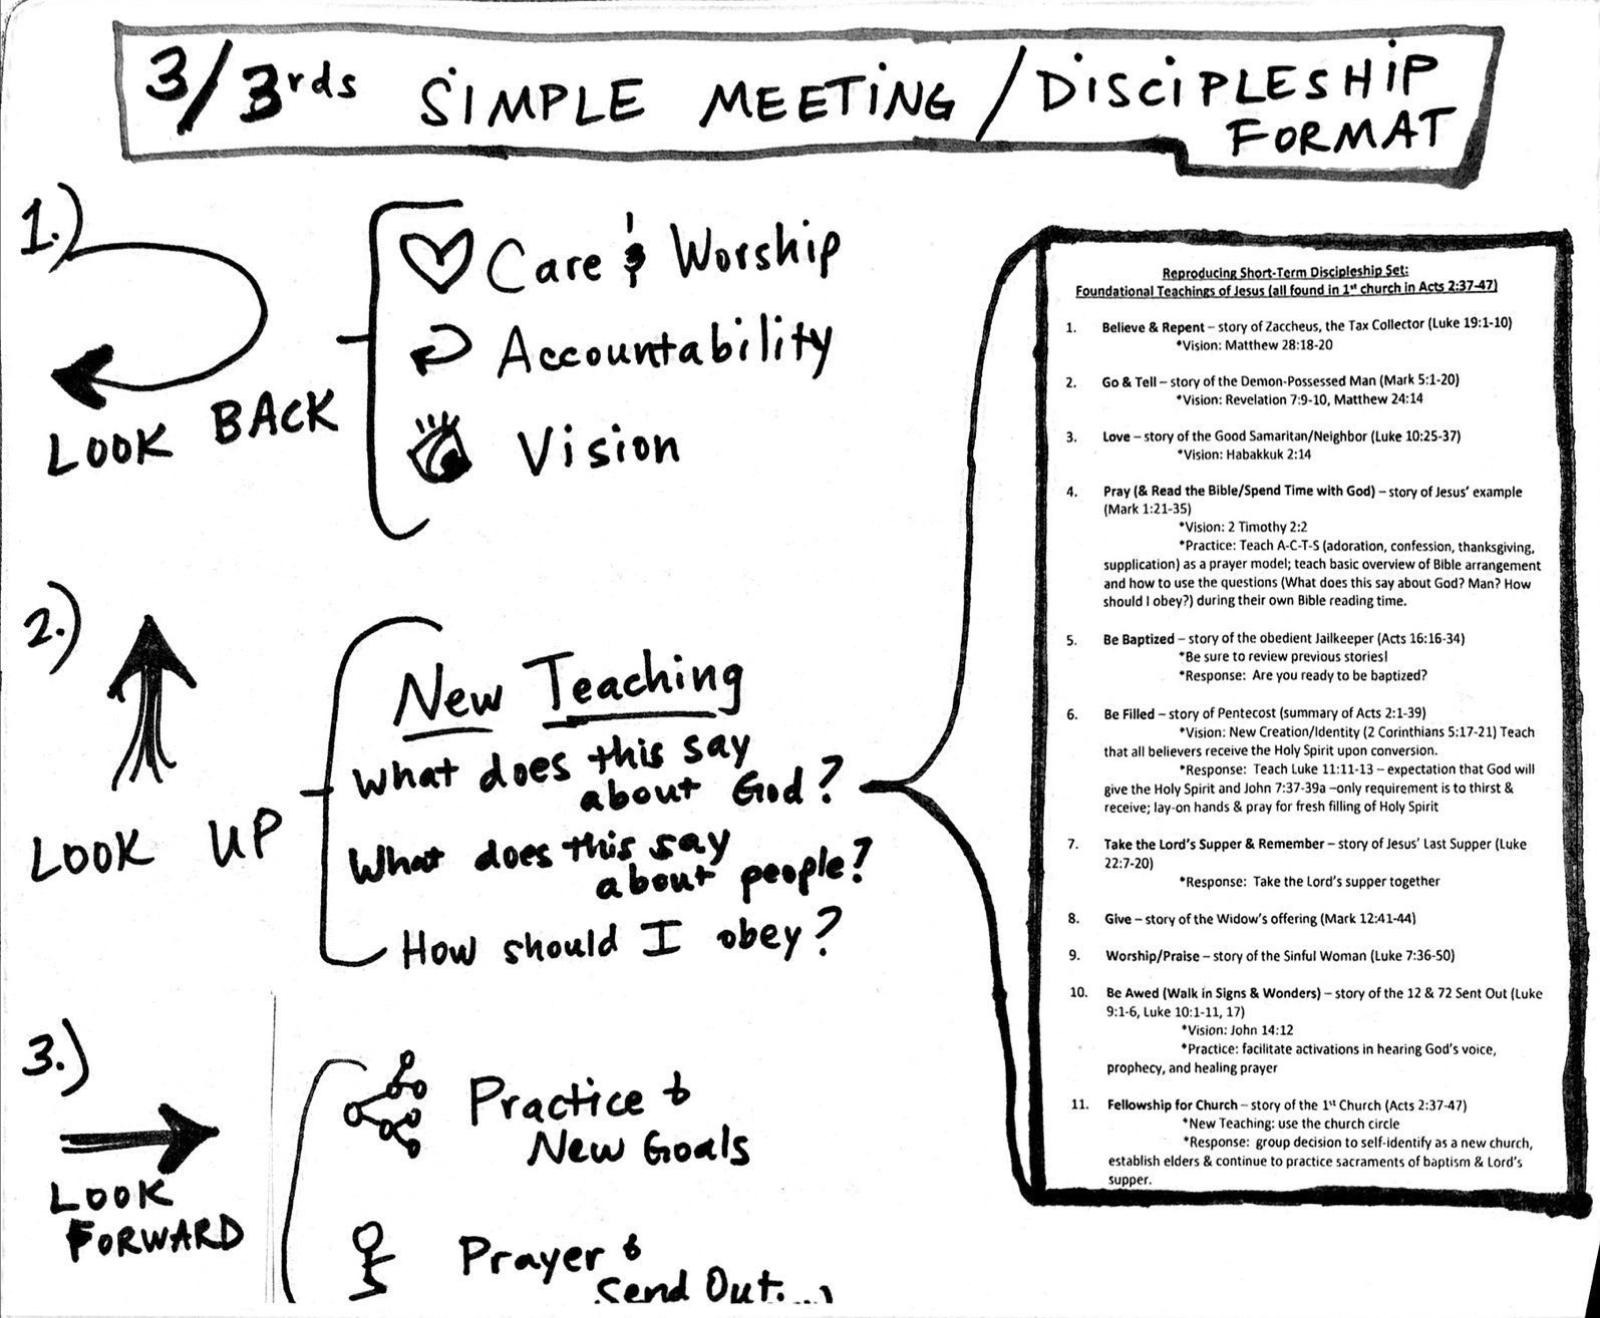 3/3rds SIMPLE MEETING / DISCIPLESHIP
FORMAT
1.)
LOOK BACK
Care & Worship
Accountability
Vision
2.)
LOOK UP
New Teaching
What does this say
about God?
What does this say
about people?
How should I obey?
3.)
LOOK
FORWARD
Practice &
New Goals
Prayer &
Send Out...
Reproducing Short-Term Discipleship Set:
Foundational Teachings of Jesus (all found in 1st church in Acts 2:37-47)
1. Believe & Repent – story of Zaccheus, the Tax Collector (Luke 19:1-10)
*Vision: Matthew 28:18-20
2. Go & Tell – story of the Demon-Possessed Man (Mark 5:1-20)
*Vision: Revelation 7:9-10, Matthew 24:14
3. Love – story of the Good Samaritan/Neighbor (Luke 10:25-37)
*Vision: Habakkuk 2:14
4. Pray (& Read the Bible/Spend Time with God) – story of Jesus' example
(Mark 1:21-35)
*Vision: 2 Timothy 2:2
*Practice: Teach A-C-T-S (adoration, confession, thanksgiving,
supplication) as a prayer model; teach basic overview of Bible arrangement
and how to use the questions (What does this say about God? Man? How
should I obey?) during their own Bible reading time.
5. Be Baptized – story of the obedient Jailkeeper (Acts 16:16-34)
*Be sure to review previous stories!
*Response: Are you ready to be baptized?
6. Be Filled – story of Pentecost (summary of Acts 2:1-39)
*Vision: New Creation/Identity (2 Corinthians 5:17-21) Teach
that all believers receive the Holy Spirit upon conversion.
*Response: Teach Luke 11:11-13 – expectation that God will
give the Holy Spirit and John 7:37-39a –only requirement is to thirst &
receive; lay-on hands & pray for fresh filling of Holy Spirit
7. Take the Lord's Supper & Remember – story of Jesus' Last Supper (Luke
22:7-20)
*Response: Take the Lord's supper together
8. Give – story of the Widow's offering (Mark 12:41-44)
9. Worship/Praise – story of the Sinful Woman (Luke 7:36-50)
10. Be Awed (Walk in Signs & Wonders) – story of the 12 & 72 Sent Out (Luke
9:1-6, Luke 10:1-11, 17)
*Vision: John 14:12
*Practice: facilitate activations in hearing God's voice,
prophecy, and healing prayer
11. Fellowship for Church – story of the 1st Church (Acts 2:37-47)
*New Teaching: use the church circle
*Response: group decision to self-identify as a new church,
establish elders & continue to practice sacraments of baptism & Lord's
supper.